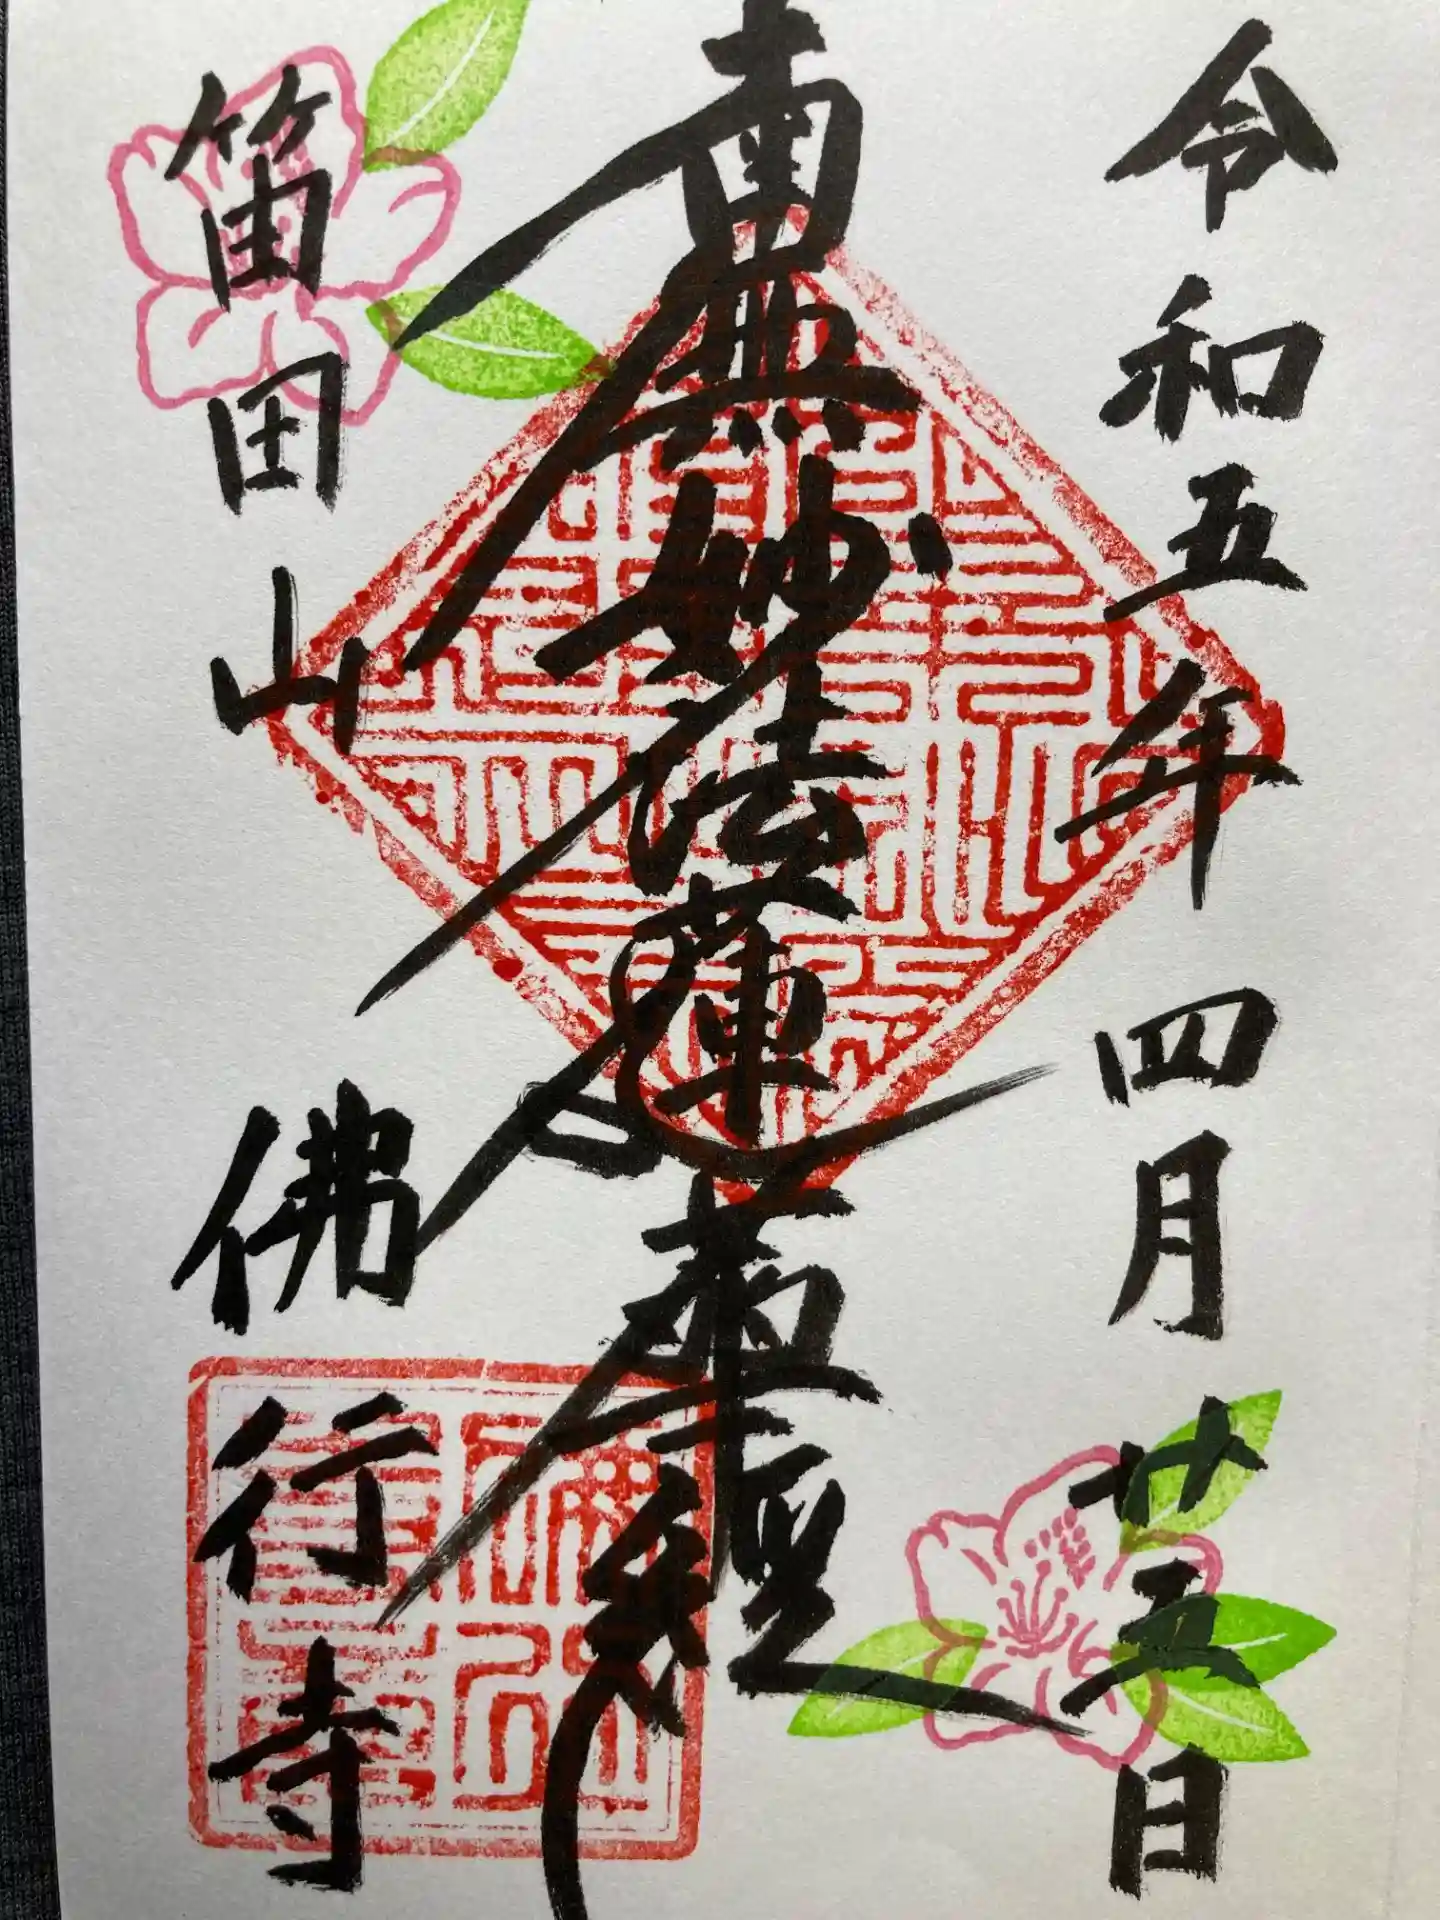 令和五年四月廿五日
南無妙法蓮華經
笛田山佛行寺